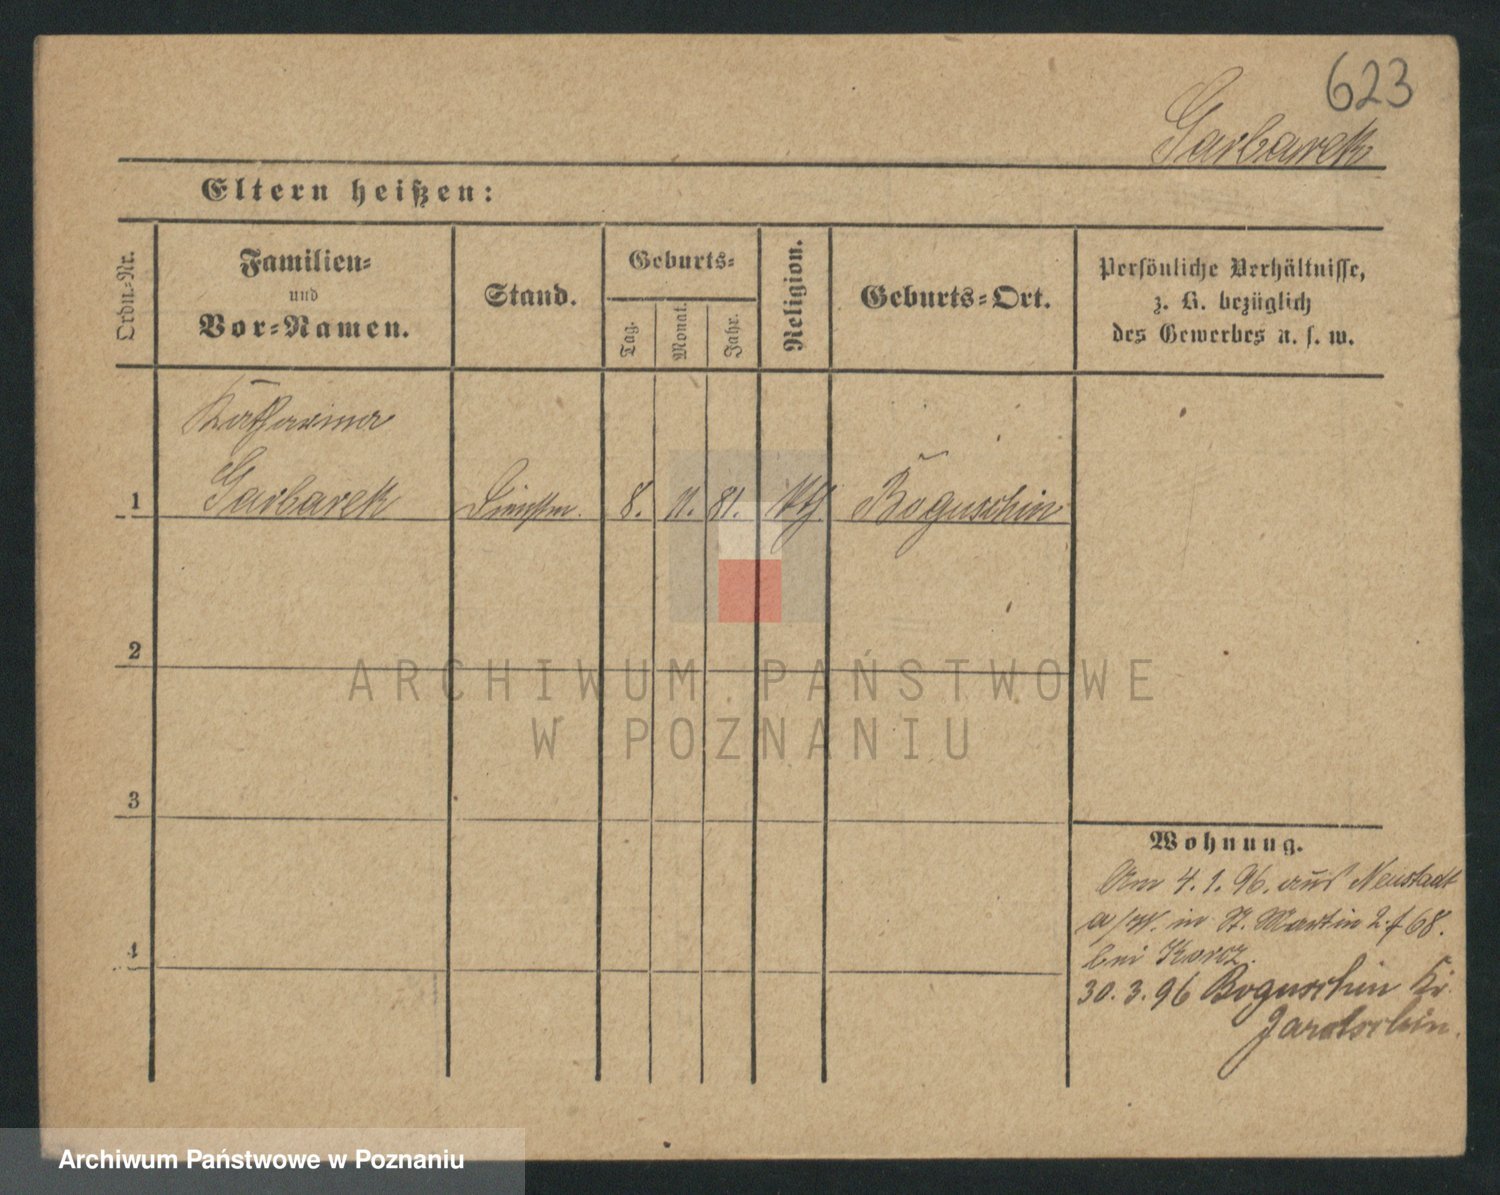 623
Garbarek
Eltern heißen:
Ordn.-Nr.
Familien-
und
Vor-Namen.
Stand.
Geburts-
Tag.
Monat.
Jahr.
Religion.
Geburts-Ort.
Persönliche Verhältnisse,
z. B. bezüglich
des Gewerbes u. s. w.
Katharina
1 Garbarek Dienstm. 8. 11. 81. kth Boguschin
2
3
4
Wohnung.
Am 4.1.96. aus Neustadt
a/W. in St. Martin 68.
bei Korcz.
30.3.96 Boguschin Kr.
Jarotschin.
ARCHIWUM PAŃSTWOWE
W POZNANIU
Archiwum Państwowe w Poznaniu